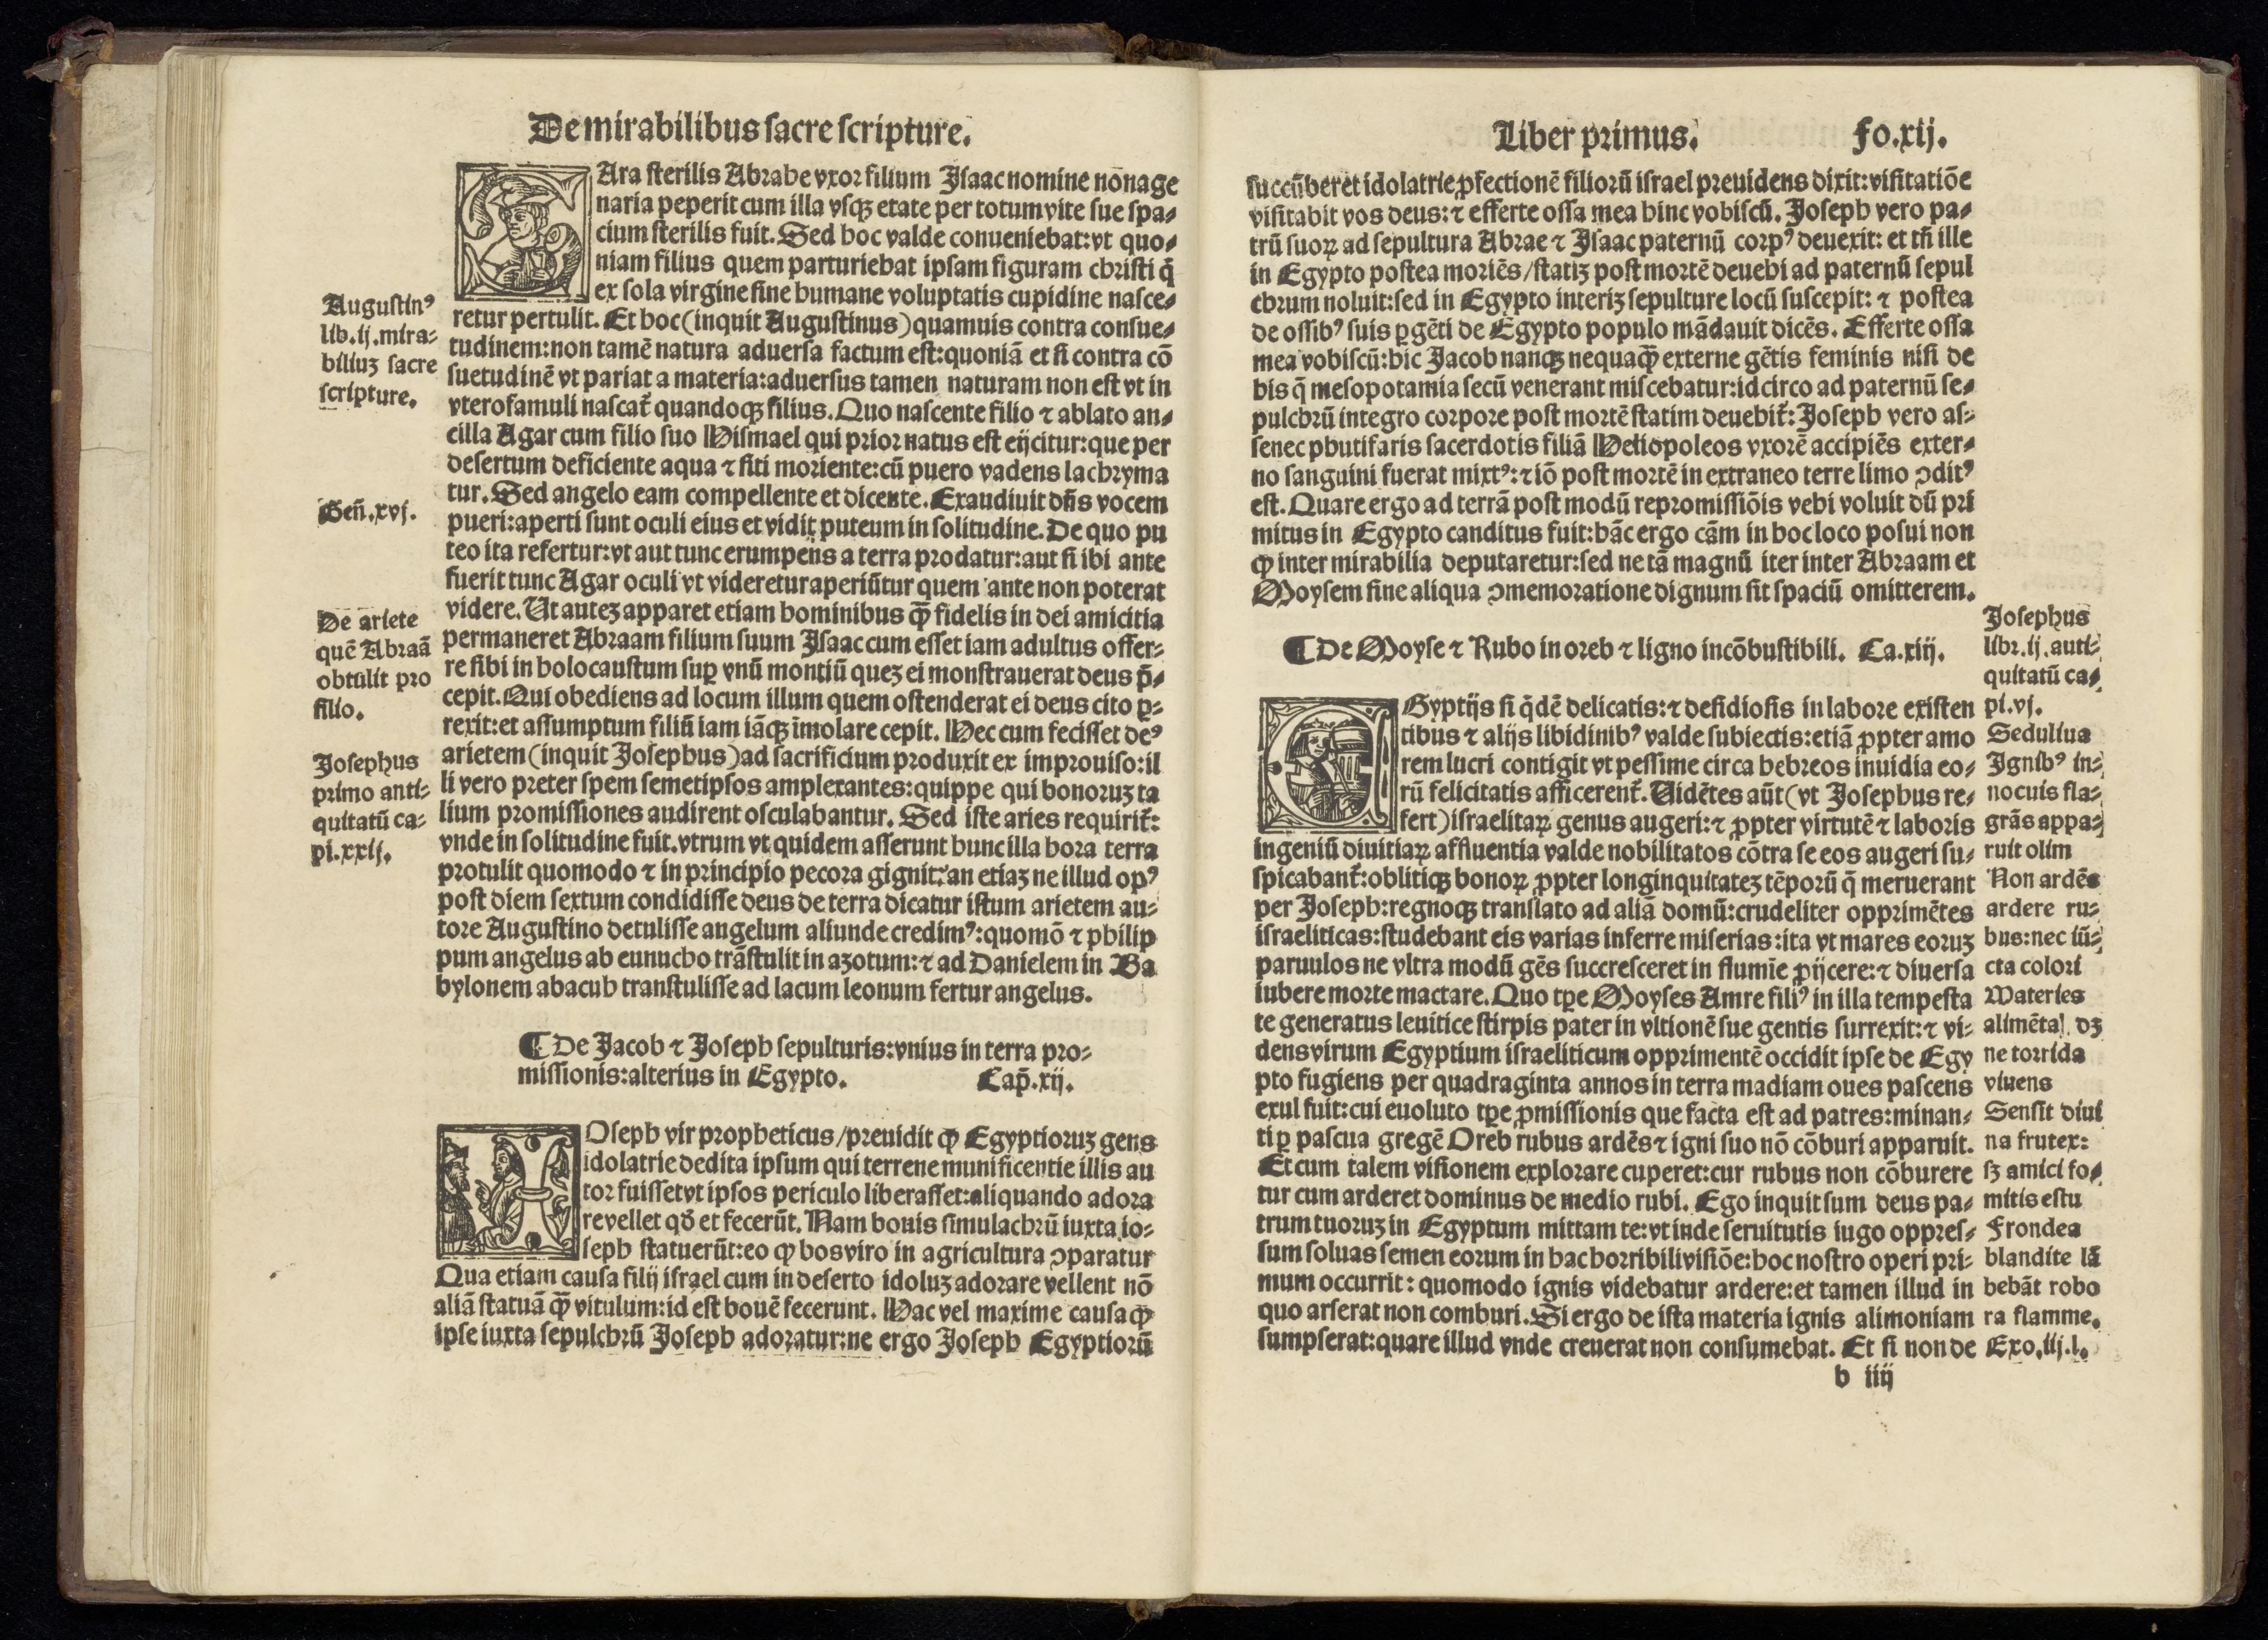 De mirabilibus sacre scripture.
SAra sterilis Abrahe vxor filium Isaac nomine nōnage
naria peperit cum illa vsqꝫ etate per totum vite sue spa-
cium sterilis fuit. Sed hoc valde conueniebat: vt quo-
niam filius quem parturiebat ipsam figuram christi q̄
ex sola virgine sine humane voluptatis cupidine nasce-
retur pertulit. Et hoc (inquit Augustinus) quamuis contra consue-
tudinem: non tamē natura aduersa factum est: quoniā et si contra cō
suetudinē vt pariat a materia: aduersus tamen naturam non est vt in
vtero famuli nascat̄ quandoqꝫ filius. Quo nascente filio ⁊ ablato an-
cilla Agar cum filio suo Hismael qui prior natus est eijcitur: que per
desertum deficiente aqua ⁊ siti moriente: cū puero vadens lachryma
tur. Sed angelo eam compellente et dicente. Exaudiuit dn̄s vocem
pueri: aperti sunt oculi eius et vidit puteum in solitudine. De quo pu
teo ita refertur: vt aut tunc erumpens a terra prodatur: aut si ibi ante
fuerit tunc Agar oculi vt videretur aperiūtur quem ante non poterat
videre. Ut auteꝫ apparet etiam hominibus qꝫ̄ fidelis in dei amicitia
permaneret Abraam filium suum Isaac cum esset iam adultus offer-
re sibi in holocaustum suꝑ vnū montiū queꝫ ei monstrauerat deus p̄-
cepit. Qui obediens ad locum illum quem ostenderat ei deus cito ꝑ-
rexit: et assumptum filiū iam iāqꝫ īmolare cepit. Hec cum fecisset deꝰ
arietem (inquit Josephus) ad sacrificium produxit ex improuiso: il
li vero preter spem semetipsos amplexantes: quippe qui bonoruꝫ ta
lium promissiones audirent osculabantur. Sed iste aries requirit̄:
vnde in solitudine fuit. vtrum vt quidem asserunt hunc illa hora terra
protulit quomodo ⁊ in principio pecora gignit: an etiaꝫ ne illud opꝰ
post diem sextum condidisse deus de terra dicatur istum arietem au-
tore Augustino detulisse angelum aliunde credimꝰ: quomō ⁊ philip
pum angelus ab eunucho trāstulit in azotum: ⁊ ad Danielem in Ba
bylonem abacuh transtulisse ad lacum leonum fertur angelus.
Augustinꝰ
lib. ij. mira-
biliuꝫ sacre
scripture.
Gen̄. xvj.
De ariete
quē Abraā
obtulit pro
filio.
Josephus
primo anti-
quitatū ca-
pi. xxij.
¶ De Jacob ⁊ Joseph sepulturis: vnius in terra pro-
missionis: alterius in Egypto. Cap̄. xij.
IOseph vir propheticus / preuidit ꝙ Egyptioruꝫ gens
idolatrie dedita ipsum qui terrene munificentie illis au
tor fuisset vt ipsos periculo liberasset: aliquando adora
re vellet qd̄ et fecerūt. Nam bouis simulachrū iuxta io-
seph statuerūt: eo ꝙ bos viro in agricultura ↄparatur
Qua etiam causa filij israel cum in deserto idoluꝫ adorare vellent nō
aliā statuā qꝫ̄ vitulum: id est bouē fecerunt. Hac vel maxime causa ꝙ
ipse iuxta sepulchrū Joseph adoratur: ne ergo Joseph Egyptiorū
Liber primus. Fo. xij.
succūberet idolatrie ꝓfectionē filiorū israel preuidens dixit: visitatiōe
visitabit vos deus: ⁊ efferte ossa mea hinc vobiscū. Joseph vero pa-
trū suoꝝ ad sepultura Abrae ⁊ Isaac paternū corpꝰ deuexit: et tn̄ ille
in Egypto postea moriēs / statiꝫ post mortē deuehi ad paternū sepul
chrum noluit: sed in Egypto interiꝫ sepulture locū suscepit: ⁊ postea
de ossibꝰ suis ꝑgēti de Egypto populo mādauit dicēs. Efferte ossa
mea vobiscū: hic Jacob nanqꝫ nequaqꝫ̄ externe gētis feminis nisi de
his q̄ mesopotamia secū venerant miscebatur: idcirco ad paternū se-
pulchrū integro corpore post mortē statim deuehit̄: Joseph vero as-
senec phutifaris sacerdotis filiā Heliopoleos vxorē accipiēs exter-
no sanguini fuerat mixtꝰ: ⁊ iō post mortē in extraneo terre limo ↄditꝰ
est. Quare ergo ad terrā post modū repromissiōis vehi voluit dū pri
mitus in Egypto canditus fuit: hāc ergo cām in hoc loco posui non
ꝙ inter mirabilia deputaretur: sed ne tā magnū iter inter Abraam et
Moysem sine aliqua ↄmemoratione dignum sit spaciū omitterem.
¶ De Moyse ⁊ Rubo in oreb ⁊ ligno incōbustibili. Ca. xiij.
EGyptijs si q̇dē delicatis: ⁊ desidiosis in labore existen
tibus ⁊ alijs libidinibꝰ valde subiectis: etiā ꝓpter amo
rem lucri contigit vt pessime circa hebreos inuidia eo-
rū felicitatis afficerent̄. Uidētes aūt (vt Josephus re-
fert) israelitaꝝ genus augeri: ⁊ ꝓpter virtutē ⁊ laboris
ingeniū diuitiaꝝ affluentia valde nobilitatos cōtra se eos augeri su-
spicabant̄: oblitiqꝫ bonoꝝ ꝓpter longinquitateꝫ tēporū q̄ meruerant
per Joseph: regnoqꝫ translato ad aliā domū: crudeliter opprimētes
israeliticas: studebant eis varias inferre miserias: ita vt mares eoruꝫ
paruulos ne vltra modū gēs succresceret in flumīe ꝓijcere: ⁊ diuersa
iubere morte mactare. Quo tꝑe Moyses Amre filiꝰ in illa tempesta
te generatus leuitice stirpis pater in vltionē sue gentis surrexit: ⁊ vi-
dens virum Egyptium israeliticum opprimentē occidit ipse de Egy
pto fugiens per quadraginta annos in terra madiam oues pascens
exul fuit: cui euoluto tꝑe ꝓmissionis que facta est ad patres: minan-
ti ꝑ pascua gregē Oreb rubus ardēs ⁊ igni suo nō cōburi apparuit.
Et cum talem visionem explorare cuperet: cur rubus non cōburere
tur cum arderet dominus de medio rubi. Ego inquit sum deus pa-
trum tuoruꝫ in Egyptum mittam te: vt inde seruitutis iugo oppres-
sum soluas semen eorum in hac horribili visiōe: hoc nostro operi pri-
mum occurrit: quomodo ignis videbatur ardere: et tamen illud in
quo arserat non comburi. Si ergo de ista materia ignis alimoniam
sumpserat: quare illud vnde creuerat non consumebat. Et si non de
Josephus
libr. ij. anti-
quitatū ca-
pi. vj.
Sedulius
Ignibꝰ in-
nocuis fla-
grās appa-
ruit olim
Non ardēs
ardere ru-
bus: nec iū-
cta colori
Materies
alimēta! dꝫ
ne torrida
viuens
Sensit diui
na frutex:
sꝫ amici fo-
mitis estu
Frondea
blandite lā
bebāt robo
ra flamme.
Exo. iij. l.
b iiij